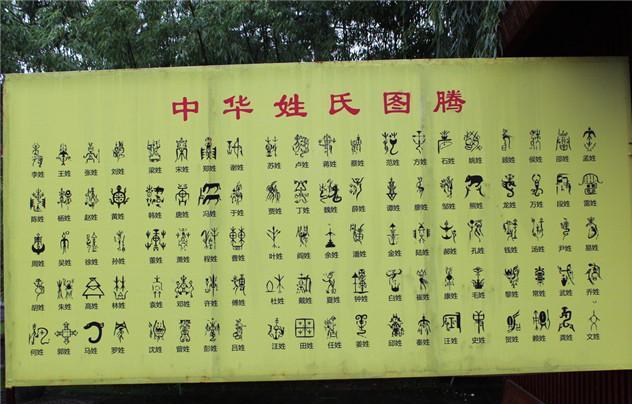 中华姓氏图腾
李姓 王姓 张姓 刘姓 梁姓 宋姓 郑姓 谢姓 苏姓 卢姓 蒋姓 蔡姓 范姓 方姓 石姓 姚姓 顾姓 侯姓 邵姓 孟姓
陈姓 杨姓 赵姓 黄姓 韩姓 唐姓 冯姓 于姓 贾姓 丁姓 魏姓 薛姓 谭姓 廖姓 邹姓 熊姓 龙姓 万姓 段姓 雷姓
周姓 吴姓 徐姓 孙姓 董姓 萧姓 程姓 曹姓 叶姓 阎姓 余姓 潘姓 金姓 陆姓 郝姓 孔姓 钱姓 汤姓 尹姓 易姓
胡姓 朱姓 高姓 林姓 袁姓 邓姓 许姓 傅姓 杜姓 戴姓 夏姓 钟姓 白姓 崔姓 康姓 毛姓 黎姓 常姓 武姓 乔姓
何姓 郭姓 马姓 罗姓 沈姓 曾姓 彭姓 吕姓 汪姓 田姓 任姓 姜姓 邱姓 秦姓 史姓 贺姓 赖姓 龚姓 文姓